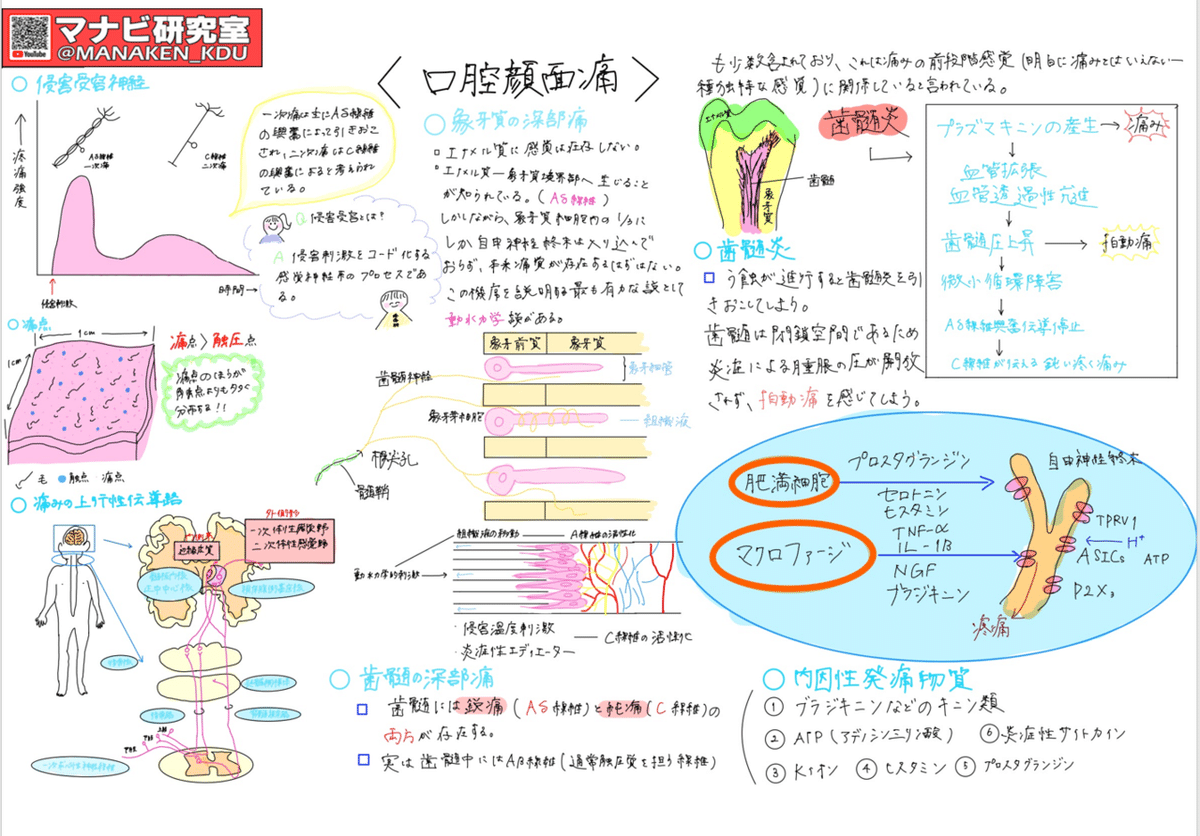 マナビ研究室
@MANAKEN_KDU
YouTube
〈 口腔顔面痛 〉
○ 侵害受容神経
疼痛強度
Aδ繊維
一次痛
C繊維
二次痛
時間→
侵害刺激
一次痛は主にAδ繊維
の興奮によって引きおこ
され、二次痛はC繊維
の興奮によると考えられ
ている。
Q 侵害受容とは?
A 侵害刺激をコード化する
感覚神経系のプロセスであ
る。
○ 痛点
1cm
1cm
痛点 > 触圧点
痛点のほうが
分布する!!
毛 触点 痛点
○ 痛みの上行性伝導路
一次体性感覚野
二次体性感覚野
○ 象牙質の深部痛
エナメル質に感覚は存在しない。
エナメル質ー象牙質境界部へ生じること
が知られている。(Aδ繊維)
しかしながら、象牙質細胞内の1/3に
しか自由神経終末は入り込んで
おらず、本来痛覚が存在するはずはない。
この機序を説明する最も有力な説として
動水力学説がある。
象牙前質 象牙質
歯髄神経
象牙細管
象牙芽細胞
組織液
根尖孔
髄鞘
組織液の移動
A繊維の活性化
動水力学的刺激
・侵害温度刺激
・炎症性メディエーター
C繊維の活性化
○ 歯髄の深部痛
歯髄には鋭痛(Aδ繊維)と鈍痛(C繊維)の
両方が存在する。
実は歯髄中にはAβ繊維(通常触圧覚を担う繊維)
も少数含まれており、これは痛みの前段階感覚(明白に痛みとはいえない一
種独特な感覚)に関係していると言われている。
エナメル質
歯髄
象牙質
歯髄炎
プラズマキニンの産生→痛み
血管拡張
血管透過性亢進
歯髄圧上昇→拍動痛
微小循環障害
Aδ繊維興奮伝導停止
C繊維が伝える鈍い疼く痛み
○ 歯髄炎
う蝕が進行すると歯髄炎を引
きおこしてしまう。
歯髄は閉鎖空間であるため
炎症による腫脹の圧が開放
されず、拍動痛を感じてしまう。
肥満細胞
プロスタグランジン
セロトニン
ヒスタミン
TNF-α
IL-1β
マクロファージ
NGF
ブラジキニン
自由神経終末
TPRV1
H⁺
ASICs
ATP
P2X₃
疼痛
○ 内因性発痛物質
① ブラジキニンなどのキニン類
② ATP(アデノシン三リン酸)
⑥ 炎症性サイトカイン
③ Kイオン ④ ヒスタミン ⑤ プロスタグランジン